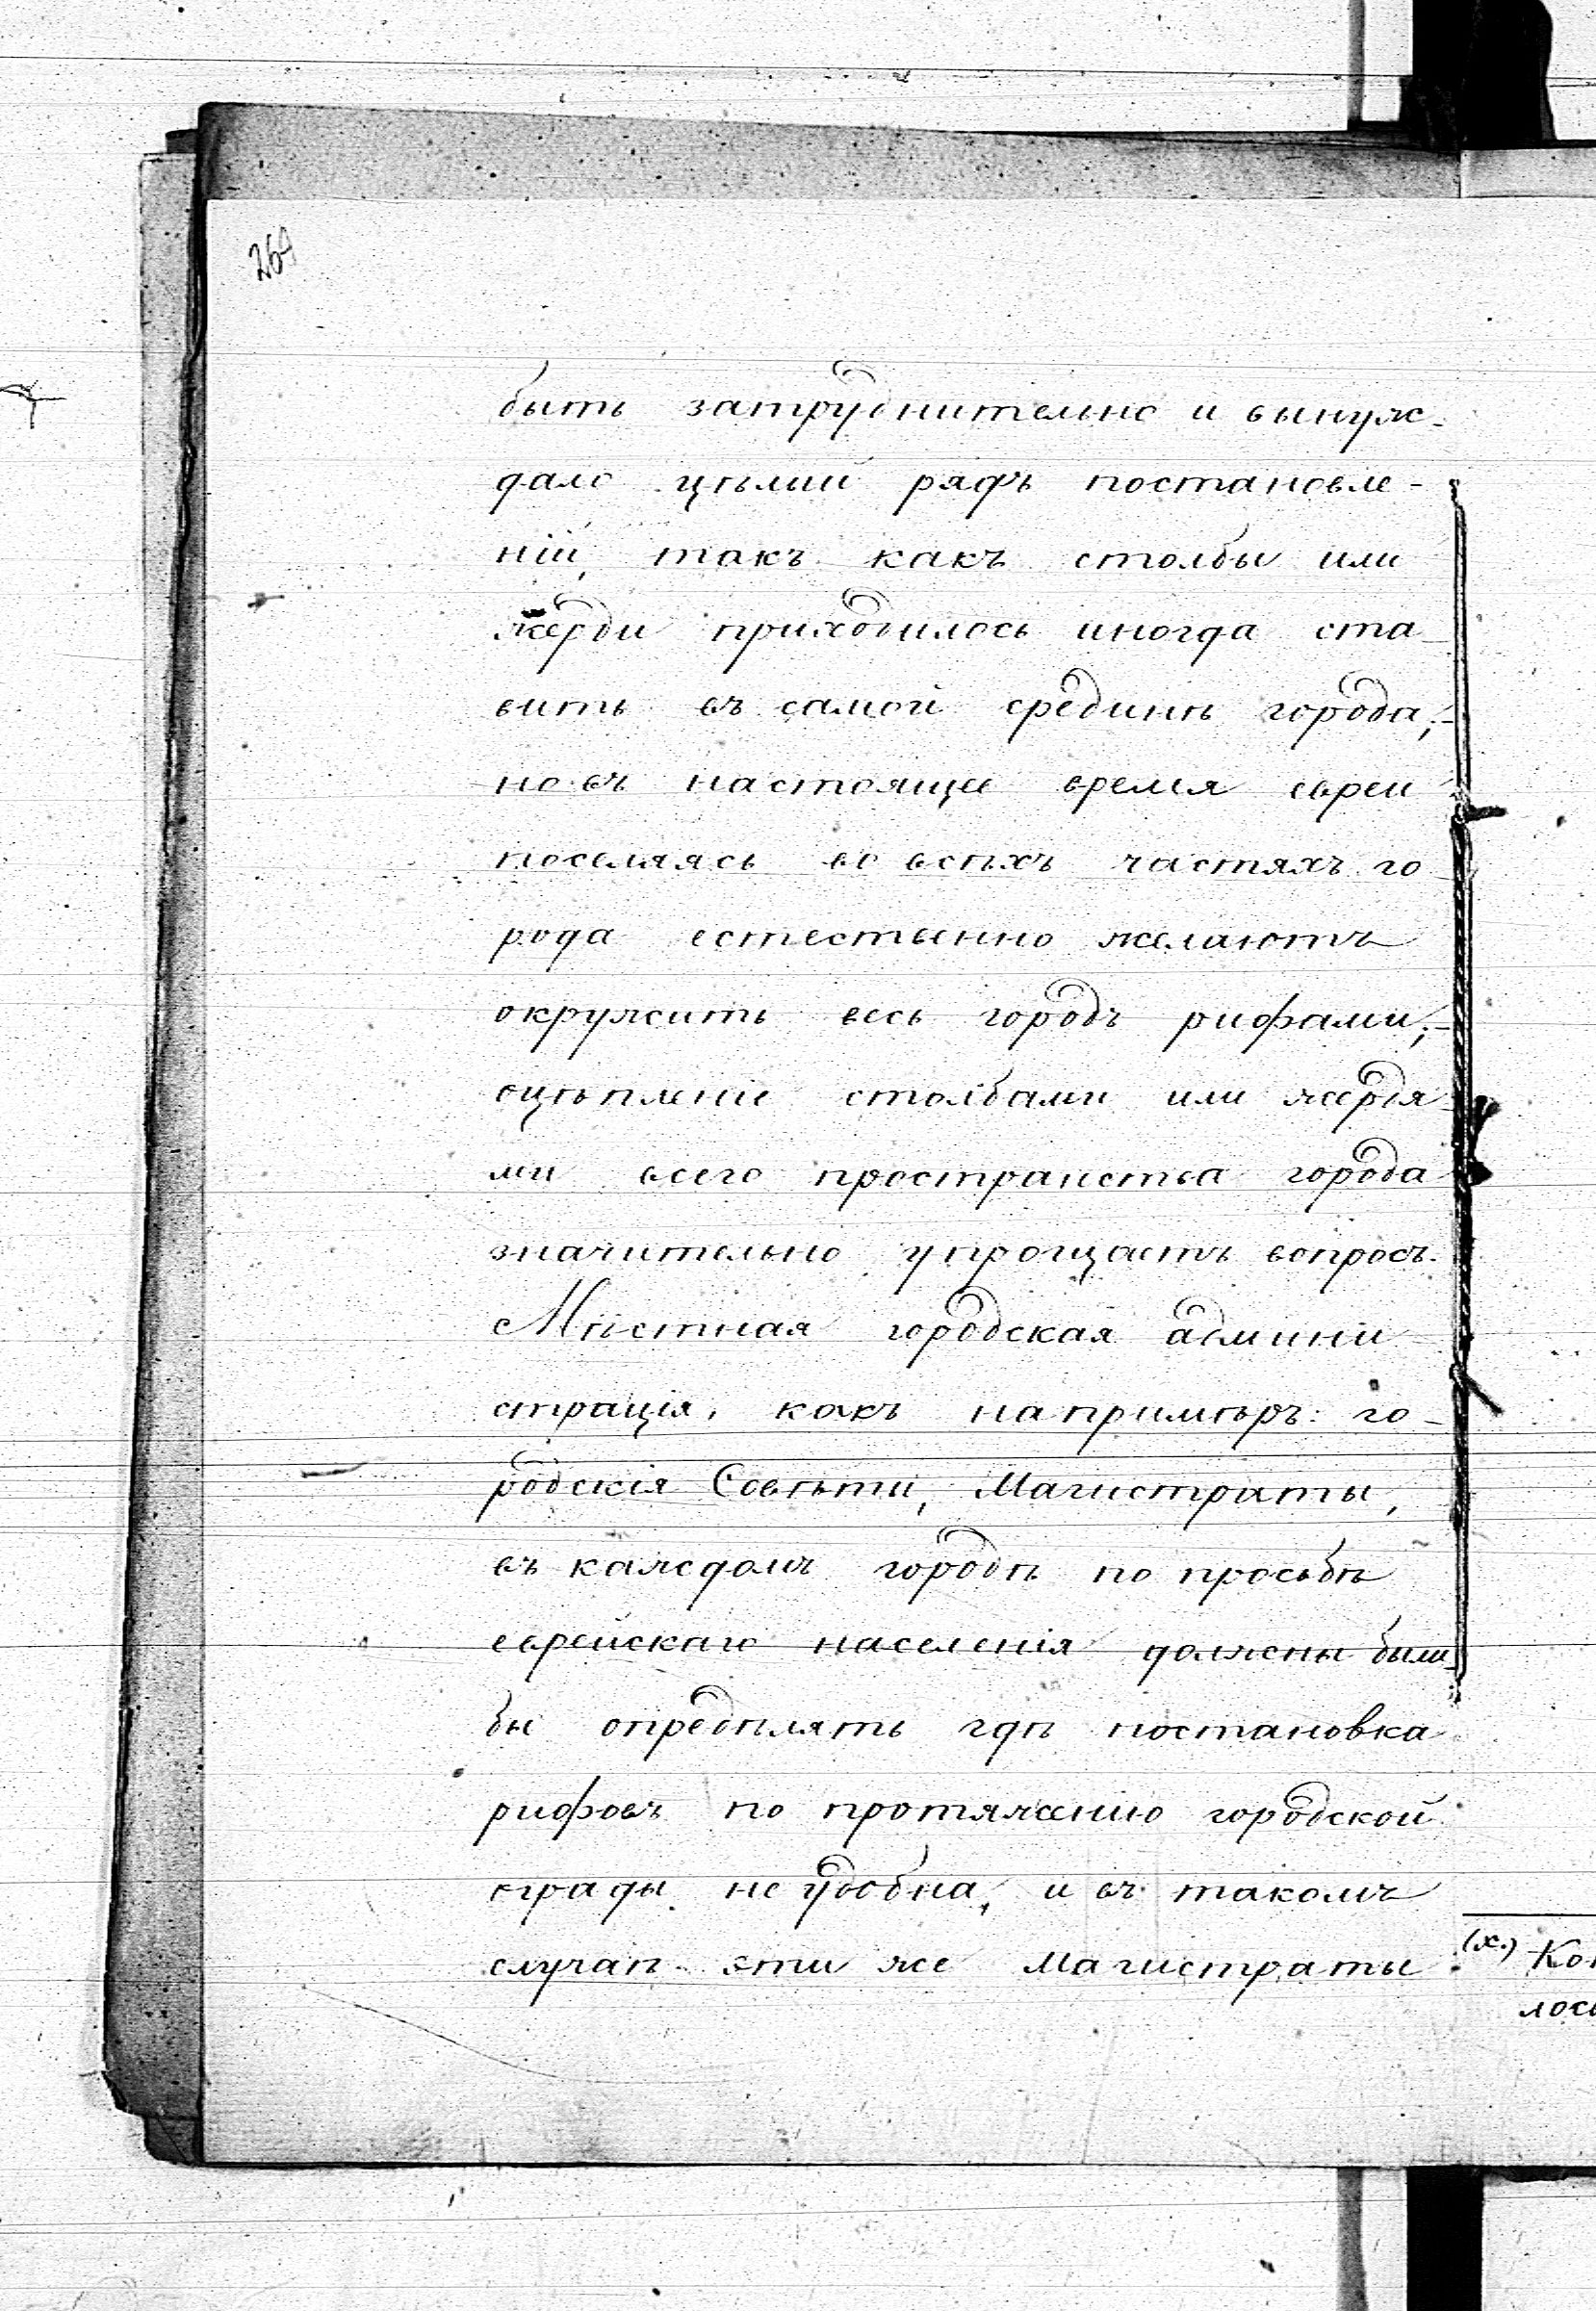 269
быть затруднительно и вынуж-
дало цѣлый рядъ постановле-
ній, такъ какъ столбы или
жерди приходилось иногда ста-
вить въ самой срединѣ города;-
но въ настоящее время евреи
поселяясь во всѣхъ частяхъ го-
рода естественно желаютъ
окружить весь городъ рифами;-
оцѣпленіе столбами или жердя-
ми всего пространства города
значительно упрощаетъ вопросъ.
Мѣстная городская админи-
страція, какъ напримѣръ: го-
родскія Совѣты, Магистраты,
въ каждомъ городѣ по просьбѣ
еврейскаго населенія должны были-
бы опредѣлять гдѣ постановка
рифовъ по протяженію городской
ограды не удобна, и въ такомъ
случаѣ эти же Магистраты
(х.) Ко
лос